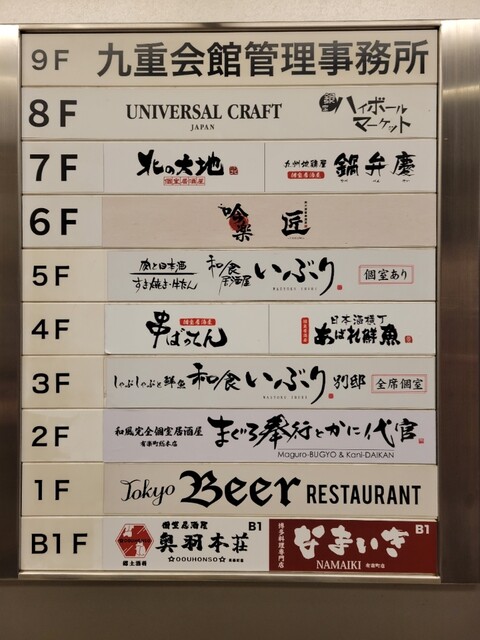 9F 九重会館管理事務所
8F UNIVERSAL CRAFT
JAPAN
銀座 ハイボール
マーケット
7F 北の大地
個室居酒屋
九州地鶏屋
個室居酒屋
鍋弁慶
6F 吟楽 匠
5F 肉と日本酒
すき焼き・牛たん
和食
居酒屋
いぶり
WASYOKU IBURI
個室あり
4F 個室居酒屋
串ばってん
個室居酒屋
日本酒横丁
あばれ鮮魚
3F しゃぶしゃぶと鮮魚 和食 いぶり 別邸 全席個室
WASYOKU IBURI
2F 和風完全個室居酒屋
有楽町総本店
まぐろ奉行とかに代官
Maguro-BUGYO & Kani-DAIKAN
1F Tokyo Beer RESTAURANT
B1F 郷土酒肴
個室居酒屋 B1
奥羽本荘
☆OOUHONSO☆
博多料理専門店
なまいき B1
NAMAIKI 有楽町店